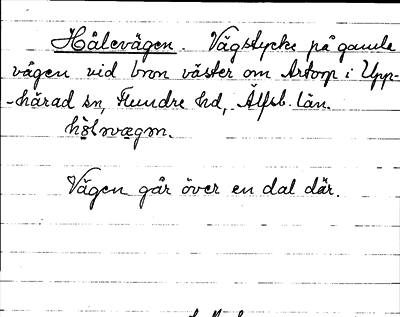 Hålevägen. Vägstycke på gamla
vägen vid bron väster om Artorp i Upp-
-härad sn, Flundre hd, Älfsb. län.
Vägen går över en dal där.